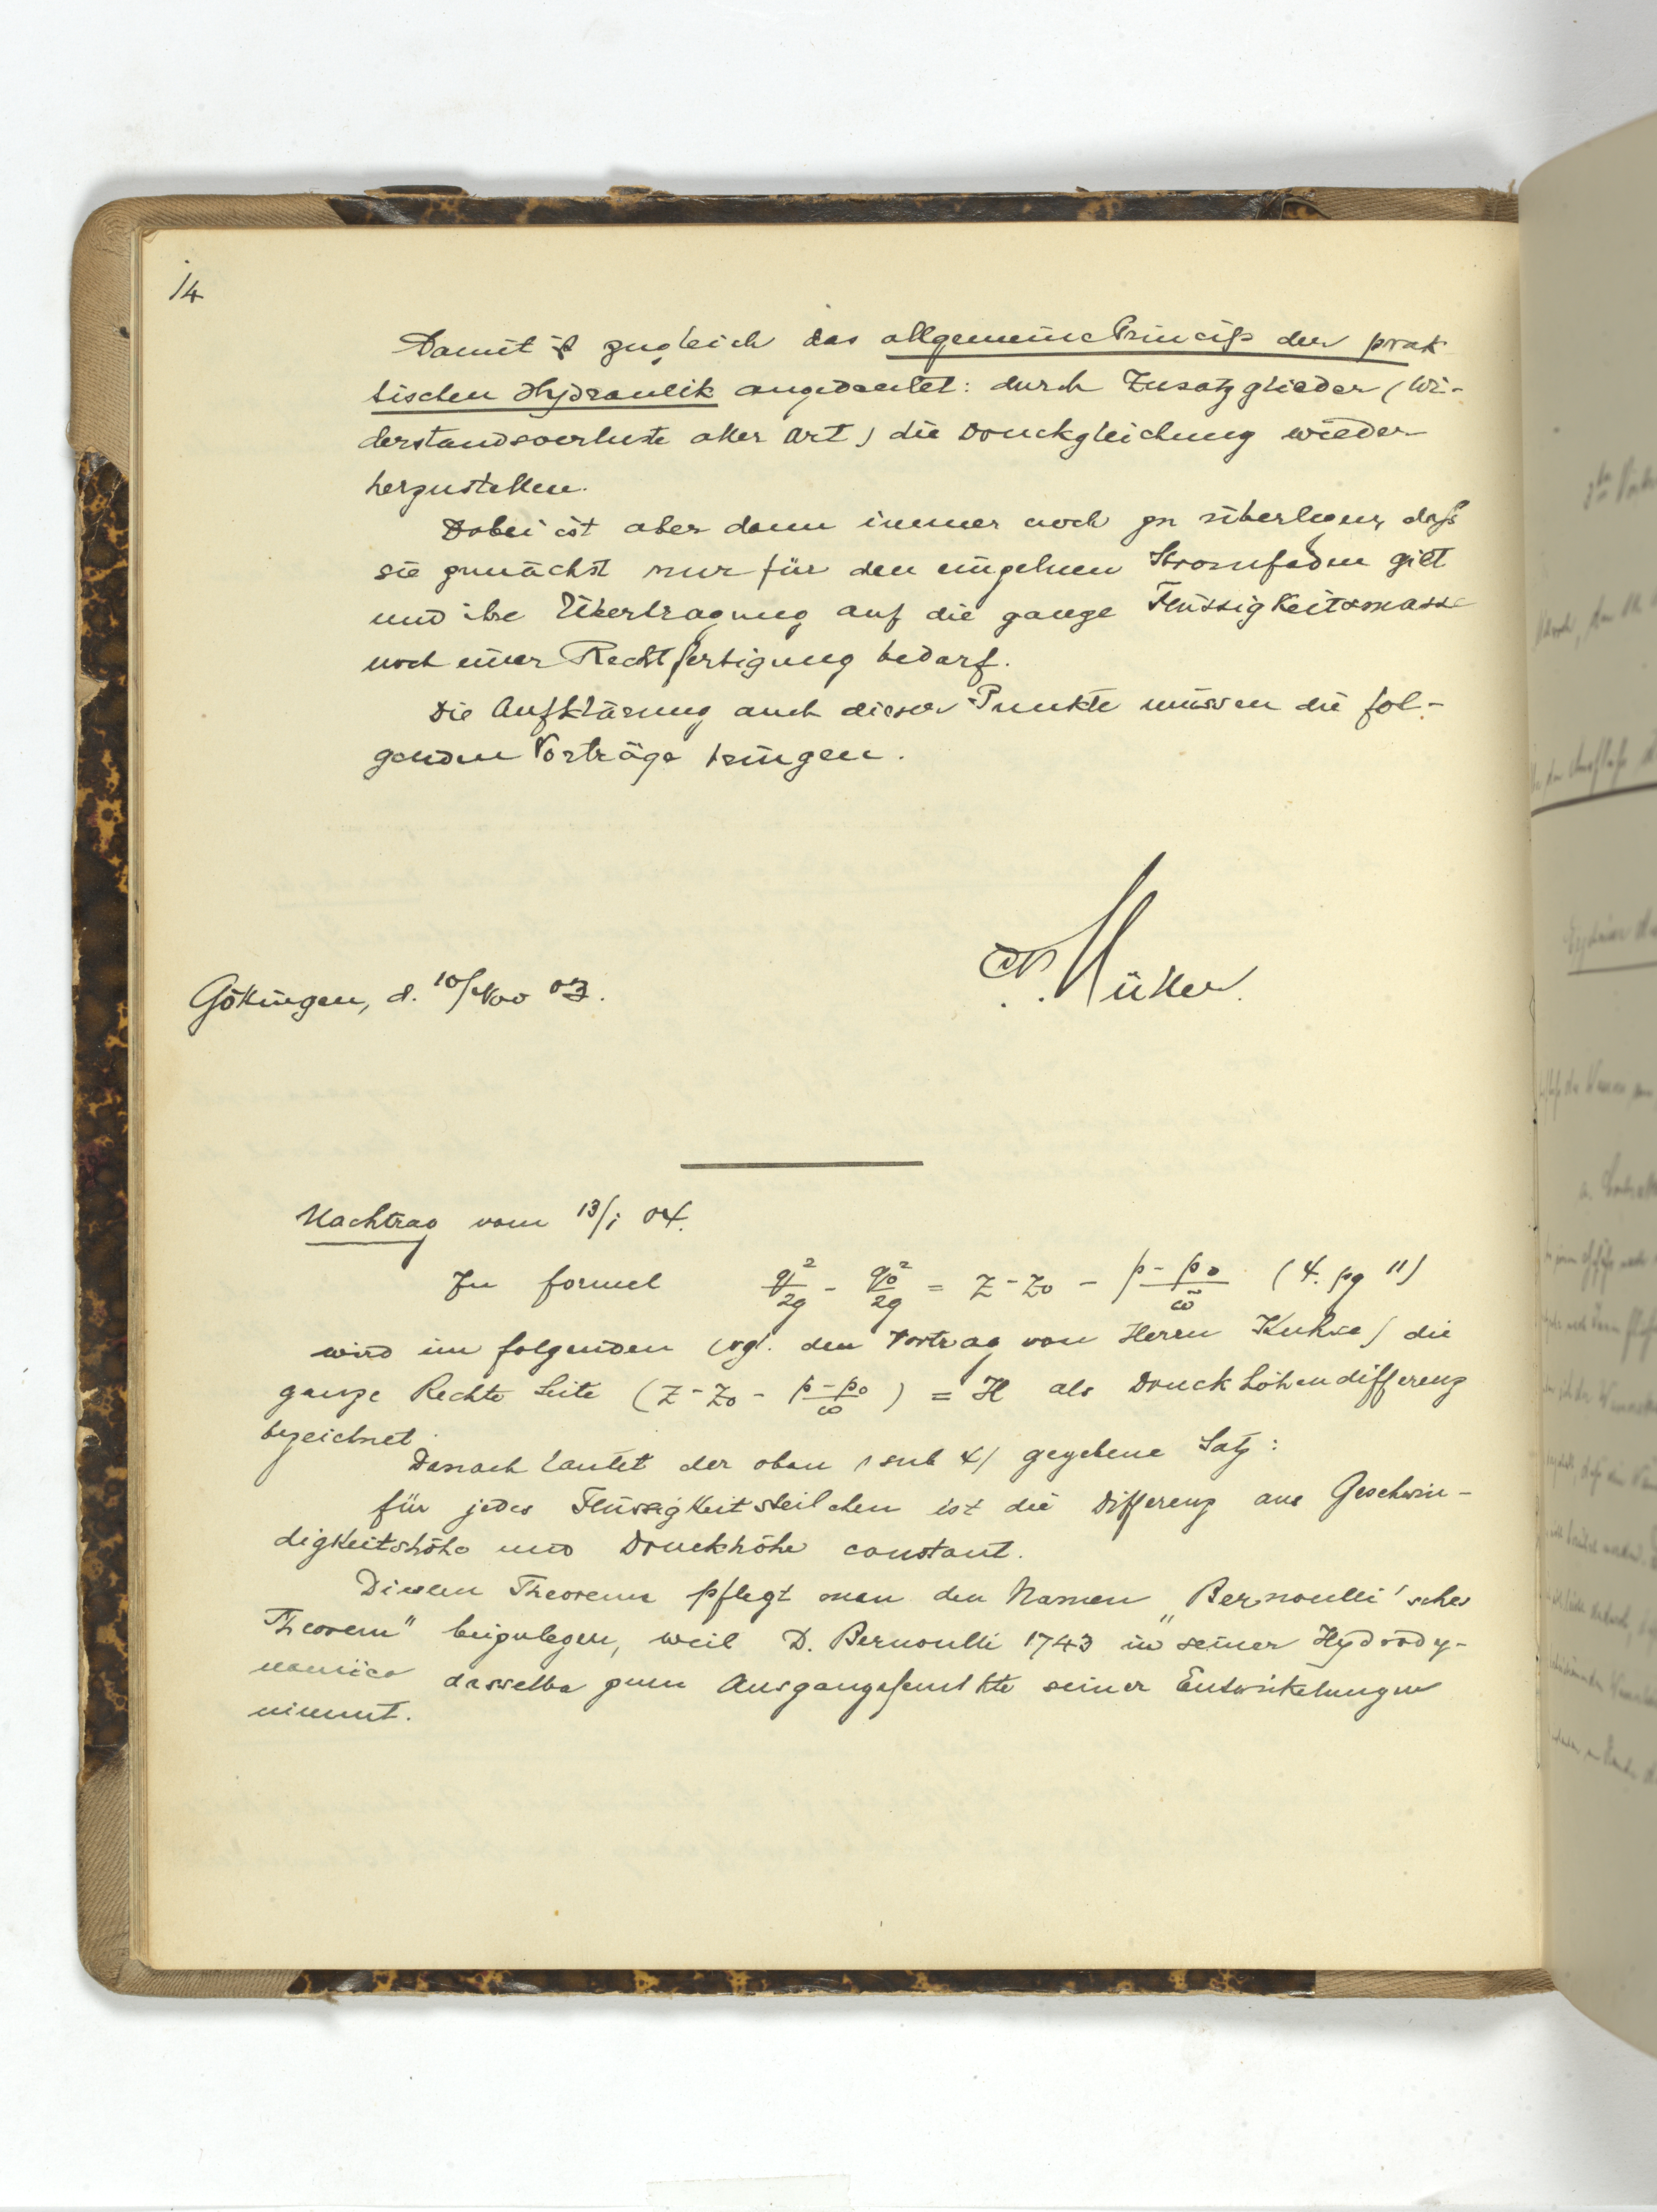 14
Damit ist zugleich das allgemeine Princip der prak
tischen Hydraulik angedeutet: durch Zusatzglieder (Wi-
derstandsverluste aller Art) die Druckgleichung wieder
herzustellen.
Dabei ist aber dann immer noch zu überlegen, daß
sie zunächst nur für den einzelnen Stromfaden gilt
und ihre Übertragung auf die ganze Flüssigkeitsmasse
noch einer Rechtfertigung bedarf.
Die Aufklärung auch dieser Punkte müssen die fol-
genden Vorträge bringen.
Müller.
Göttingen, d. 10/Nov 03.
Nachtrag vom 13/I 04.
In formel q²/2g - q₀²/2g = z - z₀ - (p - p₀)/ω̄ (4. pg 11)
wird im folgenden (vgl. den Vortrag von Herrn) die
ganze Rechte Seite (z - z₀ - (p - p₀)/ω) = H als Druckhöhendifferenz
bezeichnet.
Danach lautet der oben (sub 4) gegebene Satz:
für jedes Flüssigkeitsteilchen ist die Differenz aus Geschwin-
digkeitshöhe und Druckhöhe constant.
Diesem Theorem pflegt man den Namen „Bernoulli'sches
Theorem" beizulegen, weil D. Bernoulli 1743 in seiner Hydrody-
namica dasselbe zum Ausgangspunkte seiner Entwickelungen
nimmt.